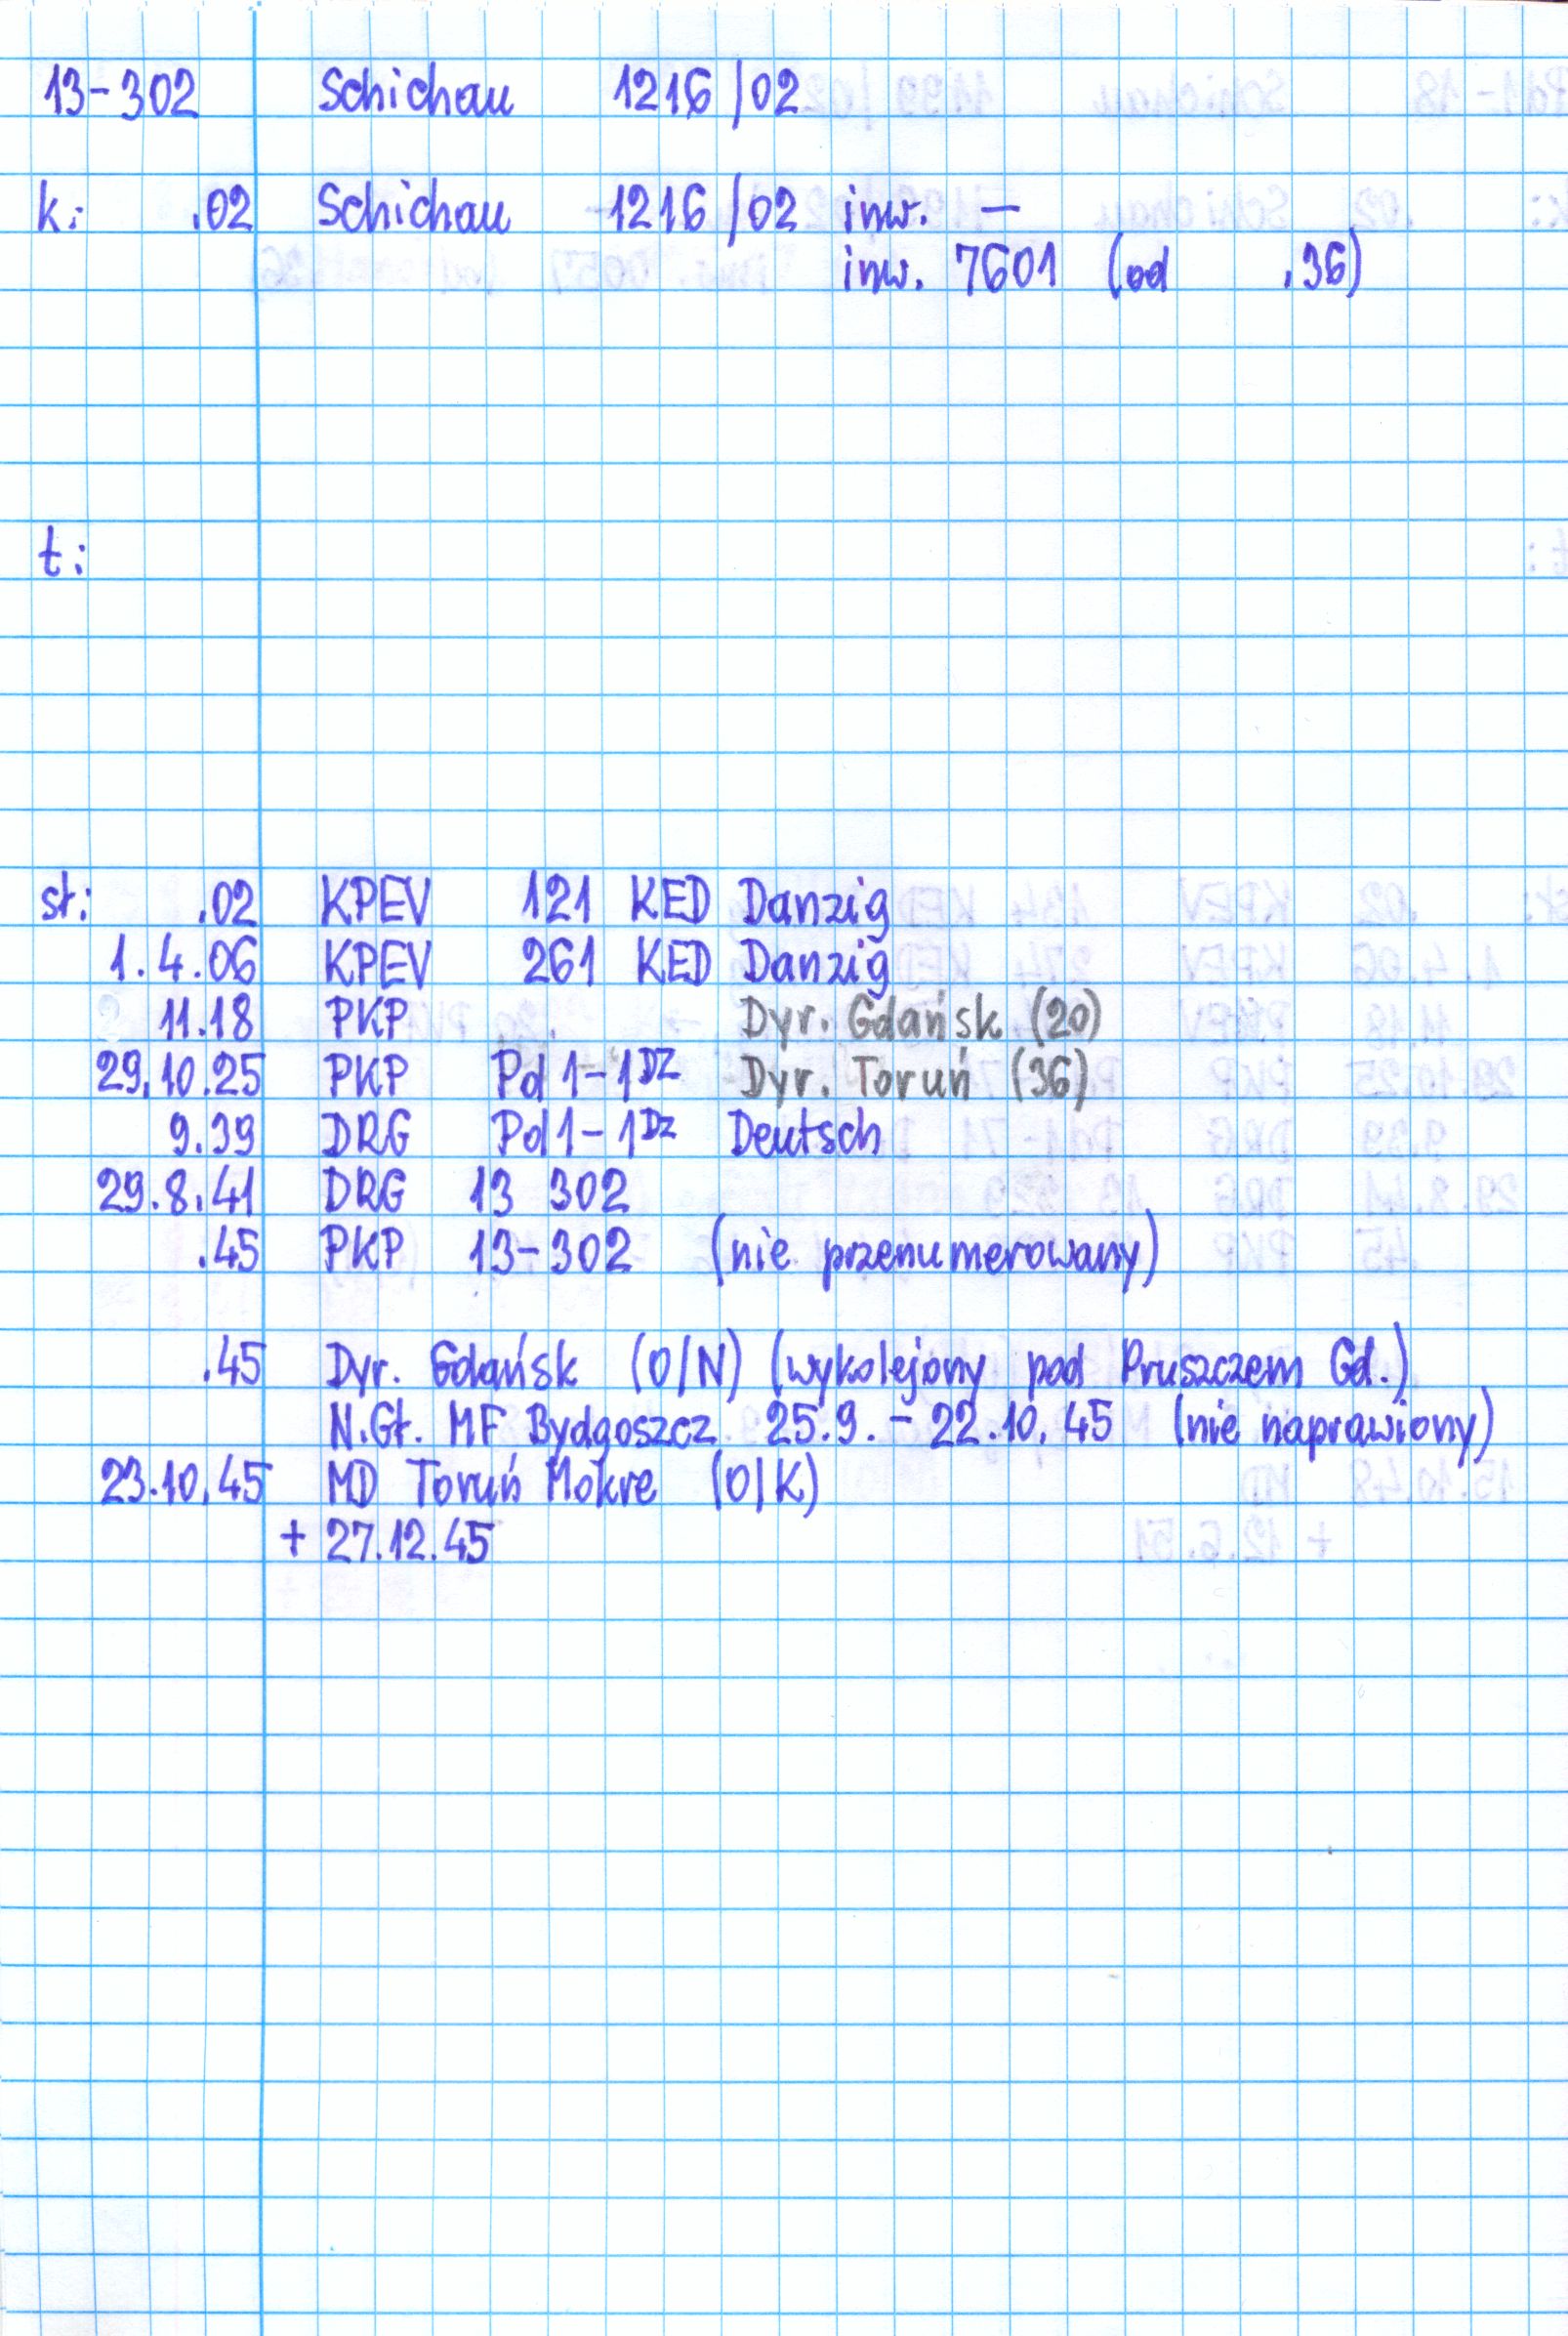 13-302 Schichau 1216/02
k: .02 Schichau 1216/02 inw. —
inw. 7601 (od .36)
t:
st: .02 KPEV 121 KED Danzig
1.4.06 KPEV 261 KED Danzig
11.18 PKP Dyr. Gdańsk (20)
29.10.25 PKP Pd1-1DZ Dyr. Toruń (36)
9.39 DRG Pd1-1Dz Deutsch
29.8.41 DRG 13 302
.45 PKP 13-302 (nie przenumerowany)
.45 Dyr. Gdańsk (O/N) (wykolejony pod Pruszczem Gd.)
N.Gł. MF Bydgoszcz 25.9. - 22.10.45 (nie naprawiony)
23.10.45 MD Toruń Mokre (O/K)
+ 27.12.45